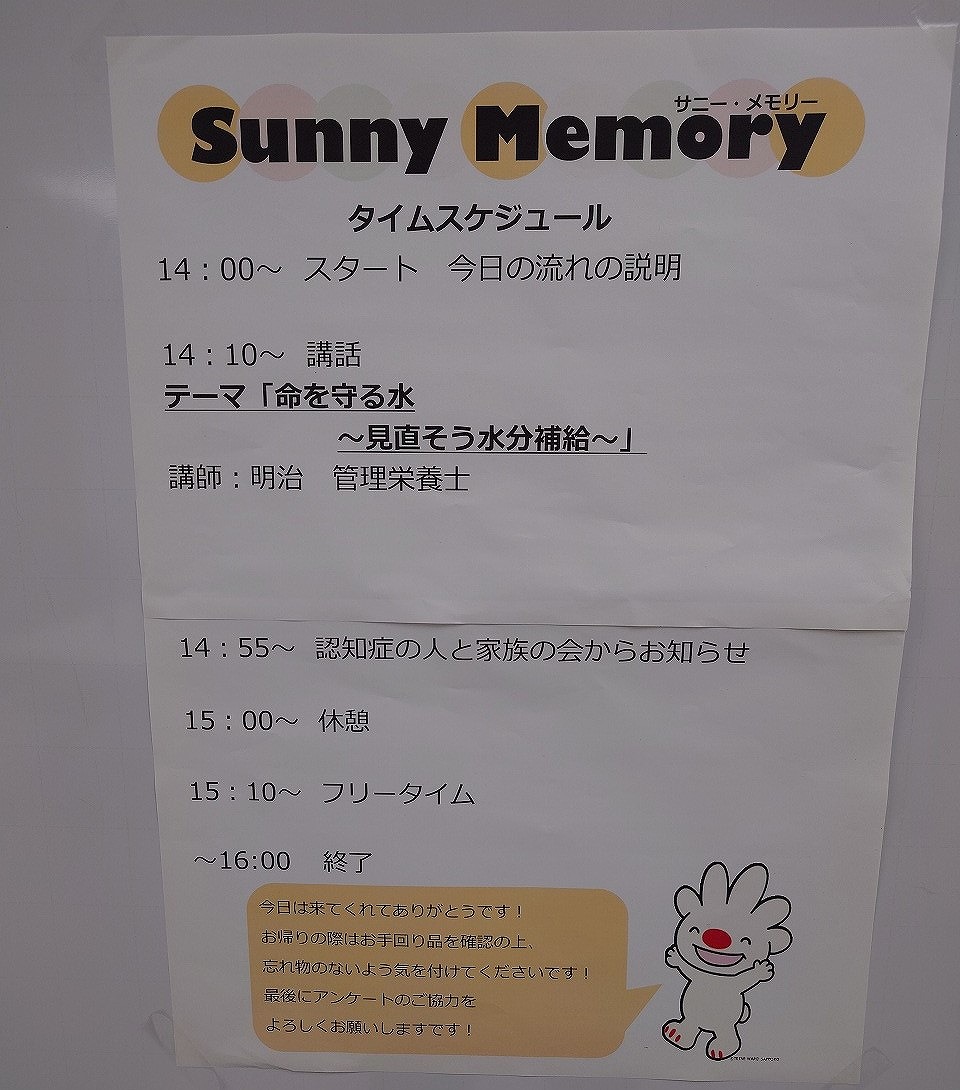 サニー・メモリー
Sunny Memory
タイムスケジュール
14：00～ スタート 今日の流れの説明
14：10～ 講話
テーマ「命を守る水
～見直そう水分補給～」
講師：明治 管理栄養士
14：55～ 認知症の人と家族の会からお知らせ
15：00～ 休憩
15：10～ フリータイム
～16:00 終了
今日は来てくれてありがとうです！
お帰りの際はお手回り品を確認の上、
忘れ物のないよう気を付けてくださいです！
最後にアンケートのご協力を
よろしくお願いしますです！